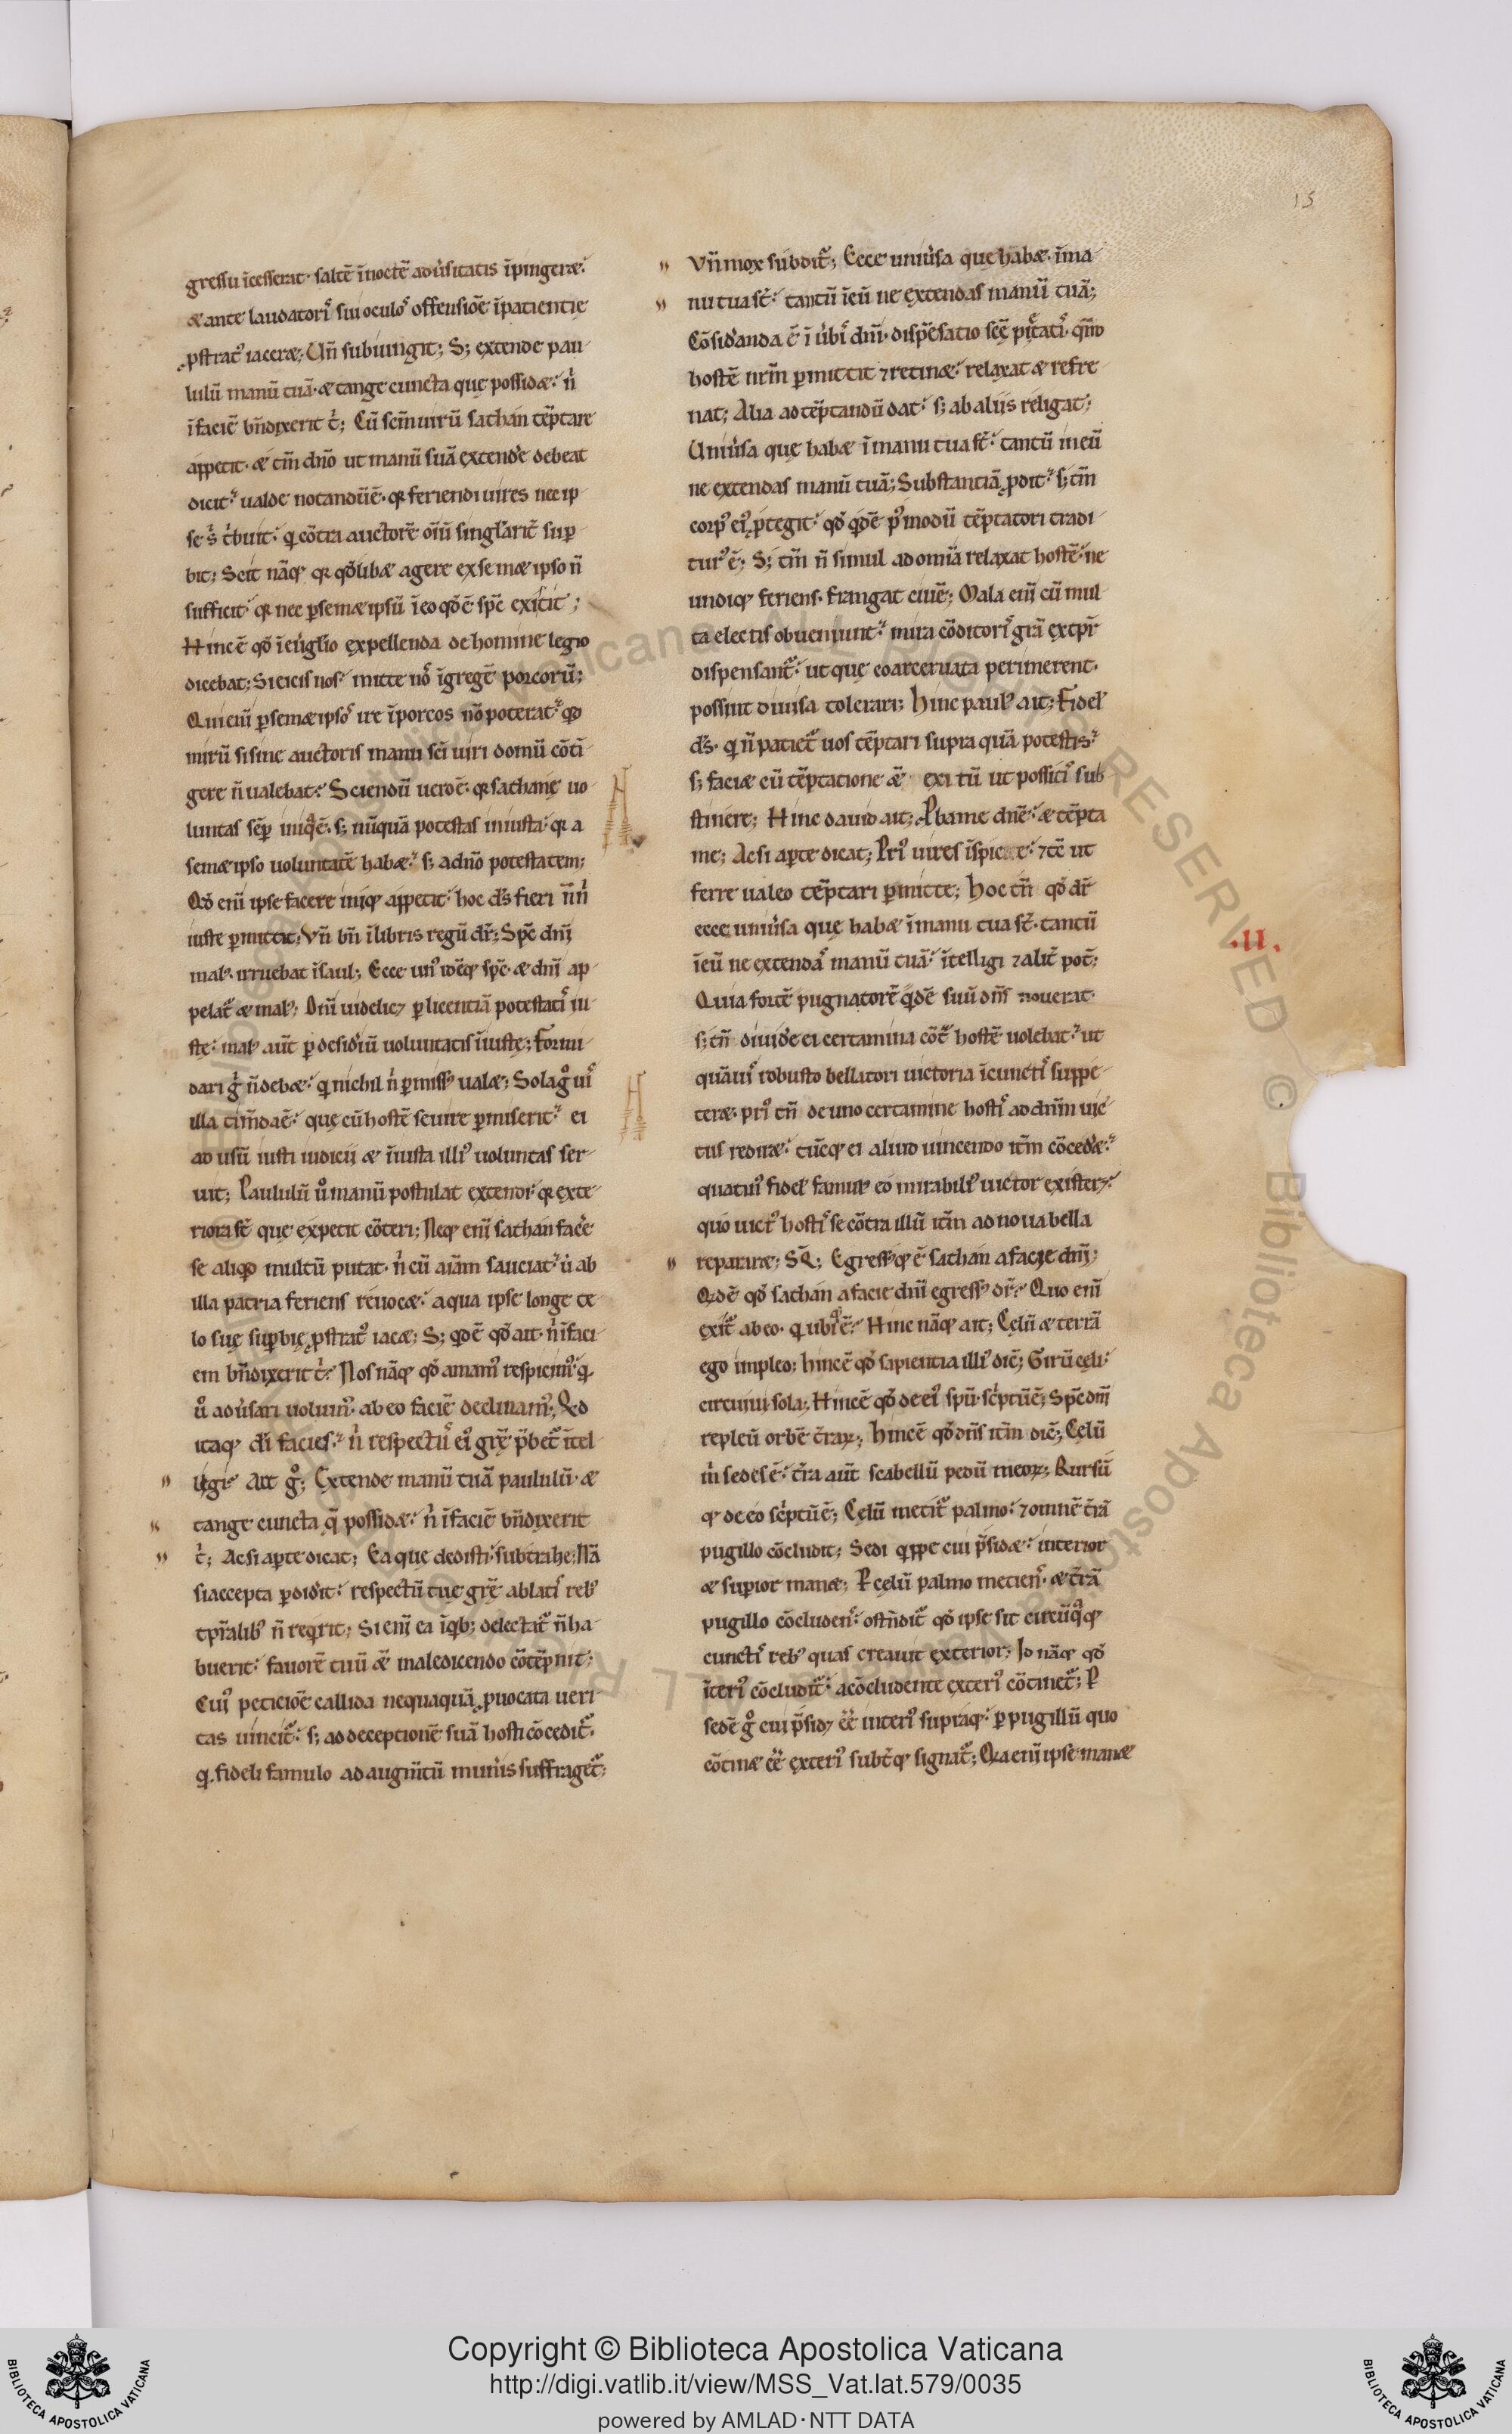 15
gressu īcesserat· saltē ī nocte aduˀsitatis īpingeræ·
æ ante laudatorꝭ sui oculoꝭ offensiōe īpatientię
ꝓstratꝰ iaceræ; Uñ subiungit; S; extende pau
lulū manū tuā· æ tange cuncta quę possidæ· nͥ
ī faciē bñdixerit tͥ; Cū sc̄m uirū sathan tēptare
appetit· æ tm̄ dño ut manū suā extendˀe debeat
dicit· ualde notandū ē· qꝛ feriendi uires nec ip
se sͥ tͥbuit· qͥ cōtra auctorē oīū singlarit̄ suꝑ
bit; Scit nāqꝫ qꝛ qd̄libæ agere ex semæ ipso ñ
sufficit· qꝛ nec ꝑ semæ ipsū ī eo qd̄ ē spc̄ exitit;
Hinc ē qd̄ ī euglio expellenda de homine legio
dicebat; Si eicis nos· mitte noꝭ ī gregē porcorū;
Qui eni ꝑ semæ ipsoꝭ ire ī porcos nō poterat· qd
mirū si sine auctoris manu sc̄i uiri domū cōtī
gere ñ ualebat· Sciendū uero ē· qꝛ sathanę uo
luntas sēꝑ iniqͣ ē· s; nūquā potestas iniusta· qꝛ a
semæ ipso uoluntatē habæ· s; a dño potestatem;
Qd̄ eni ipse facere iniqͥ appetit· hoc d̄s fieri ñ nͥ
iuste ꝑmittit; Vñ bñ ī libris regū dr̄; Spc̄ dni
malꝰ irruebat ī saul; Ecce unꝰ idēqꝫ spc̄· æ dni ap
pelat᷑ æ malꝰ; Dni uidelicꝫ ꝑ licentiā potestatꝭ iu
stę· malꝰ aut̄ ꝑ desidˀiū uoluntatis īiustę; Formi
dari gͥ ñ debæ· qͥ nichil nͥ ꝑmissꝰ ualæ; Sola gͦ uiꝭ
illa tim̄da ē· quę cū hostē seuire ꝑmiserit· ei
ad usū iusti iudicii æ īiusta illiꝰ uoluntas ser
uit; Paululū uͦ manū postulat extendi· qꝛ exte
riora st̄ que expetit cōteri; Neqꝫ eni sathan facˀe
se aliqd multū putat· nͥ cū aīam sauciat· uͭ ab
illa patria feriens reuocæ· a qua ipse longe te
lo suę suꝑbię ꝓstratꝰ iacæ; S; qͥd ē qd̄ ait· nͥ ī faci
em bñdixerit tͥ· Nos nāqꝫ qd̄ amamꝰ respicimꝰ· qͥ
uͦ aduˀsari uolumꝰ· ab eo faciē declinamꝰ; Qͥd
itaqꝫ di facies· nͥ respectuꝭ eiꝰ grē p̄bet᷑ ītel
ligi· Ait gͦ; Extende manū tuā paululū· æ
tange cuncta q̄ possidæ· nͥ ī faciē bñdixerit
tͥ; Acsi aꝑte dicat; Ea que dedisti· subtrahe; Nā
si accepta ꝑdidˀit· respectū tue grē ablatꝭ rebꝰ
tpr̄alibꝰ ñ reqͥrit; Si eni ea ī qͥb; delectat᷑ ñ ha
buerit· fauorē tuū ǣ maledicendo cōtēpnit;
Cuiꝰ peticiōe callida nequaquā ꝓuocata ueri
tas uincit᷑· s; ad deceptionē suā hosti cōcedit᷑·
qͥ fideli famulo ad augm̄tū munˀis suffraget᷑;
Vñ mox subdit᷑; Ecce uniuˀsa que habæ· ī ma
nu tua st̄· tantū ī eū ne extendas manū tuā;
Cōsidˀanda ē ī uˀbiꝭ dni· dispēsatio sc̄ę pietatꝭ· qm̄o
hostē nrm̄ ꝑmittit ⁊ retinæ· relaxat æ refre
nat; Alia ad tēptandū dat· s; ab aliis religat;
Uniuˀsa que habæ ī manu tua st̄· tantū in eū
ne extendas manū tuā; Substantiā ꝓdit· s; tm̄
corpꝰ eiꝰ ꝓtegit· qd̄ qͥdē pꝰ modū tēptatori tradi
turꝰ ē; S; tm̄ ñ simul ad omia relaxat hostē· ne
undiqꝫ feriens· frangat ciuē; Mala eni cū mul
ta electis obueniunt· mira cōditoriꝭ grā ex tpr̄
dispensant᷑· ut que coaceruata perimerent·
possint diuisa tolerari; Hinc paulꝰ ait; Fidelꝭ
d̄s· qͥ ñ patiet᷑ uos tēptari supra quā potestis·
s; faciæ cū tēptatione ǣ exi tū ut possitiꝭ sub
stinere; Hinc dauid ait; Pba me dnē· æ tēpta
me; Acsi aꝑte dicat; Priꝰ uires īspice· ⁊ tc̄ ut
ferre ualeo tēptari ꝑmitte; Hoc tñ qd̄ dr̄
ecce uniuˀsa que habæ ī manu tua st̄· tantū
ī eū ne extendaꝭ manū tuā· ītelligi ⁊ alit̄ pot̄;
Quia fortē pugnatorē qͥdē suū dñs nouerat·
s; tñ diuidˀe ei certamina cōt᷑ hostē uolebat· ut
quāuiꝭ robusto bellatori uictoria ī cunctiꝭ suppe
teræ· priꝰ tñ de uno certamine hostiꝭ ad dnm̄ uic
tus rediræ· tūcqꝫ ei aliud uincendo itm̄ cōcedˀæ·
quatinꝰ fidelꝭ famulꝰ eo mirabilꝰ uictor existerꝫ·
quo uictꝰ hostiꝭ se cōtra illū itm̄ ad noua bella
repararæ; Egressꝰqꝫ ē sathan a facie dni;
Qͥd ē qd̄ sathan a facie dni egressꝰ dr̄· Quo eni
exit᷑ ab eo· qͥ ubiqͣ ē· Hinc nāqꝫ ait; Cęlū æ terrā
ego impleo; hinc ē qd̄ sapientia illiꝰ dic̄; Girū cęli·
circuiui sola; Hinc ē qd̄ de eiꝰ spū· scͥptū ē; Spc̄ dni
repleū orbē t̄raꝝ; Hinc ē qd̄ dñs itm̄ dic̄; Cęlū
mͥ sedes ē· t̄ra aut̄ scabellū pedū meoꝝ; Rursū
qꝫ de eo scͥptū ē; Cęlū metit᷑ palmo· ⁊ omnē t̄rā
pugillo cōcludit; Sedi qͥppe cui p̄sidæ· interior
æ suꝑior manæ; P cęlū palmo metienꝭ· æ t̄rā
pugillo cōcludenꝭ· ostñdit᷑ qd̄ ipse sit circūqͣqꝫ
cunctiꝭ rebꝰ quas creauit exterior; Id nāqꝫ qd̄
īteriꝰ cōcludit᷑· a cōcludente exteriꝰ cōtinet᷑; P
sedē gͦ cui p̄sidꝫ ēē interiꝰ supraqꝫ· ꝑ pugillū quo
cōtinæ ēē exteriꝰ subt̄qꝫ signat᷑; Qͥa eni ipse manæ
.II.
Copyright © Biblioteca Apostolica Vaticana
http://digi.vatlib.it/view/MSS_Vat.lat.579/0035
powered by AMLAD·NTT DATA
BIBLIOTECA APOSTOLICA VATICANA
BIBLIOTECA APOSTOLICA VATICANA